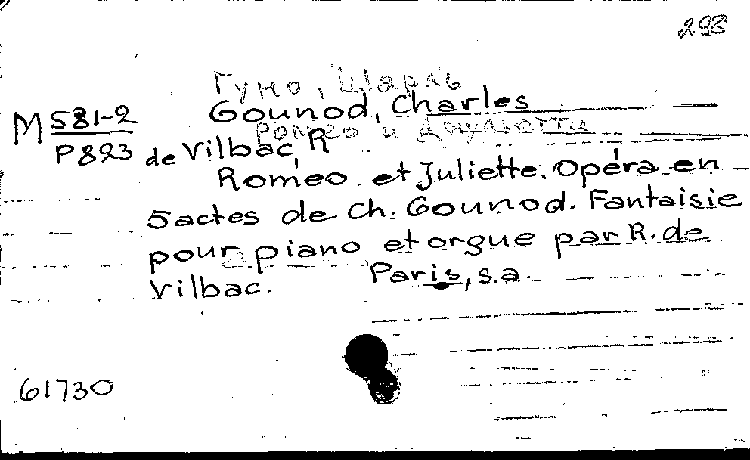 293
Гуно, Шарль
M 581-2 Gounod, Charles
Ромео и Джульетта
P823 de Vilbac, R
Romeo et Juliette. Opéra en
5 actes de Ch. Gounod. Fantaisie
pour piano et orgue par R. de
Vilbac. Paris, s.a.
61730